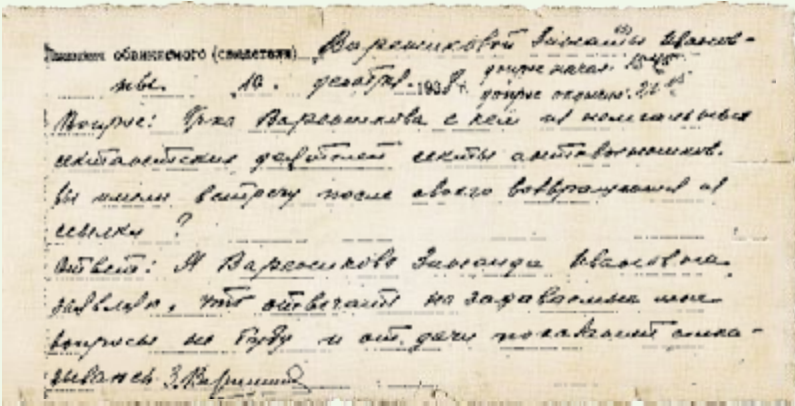 Показания обвиняемого (свидетеля) Варениковой Зинаиды Иванов-
ны. 10. декабря 1938г. допрос начат:
допрос окончен:
Вопрос: Гр-ка Вареникова с кем из нелегальных
сектантских деятелей секты антивоенников
вы имели встречу после своего возвращения из
ссылки ?
Ответ: Я Вареникова Зинаида Ивановна
заявляю, что отвечать на задаваемые мне
вопросы не буду и от дачи показаний отка-
зываюсь